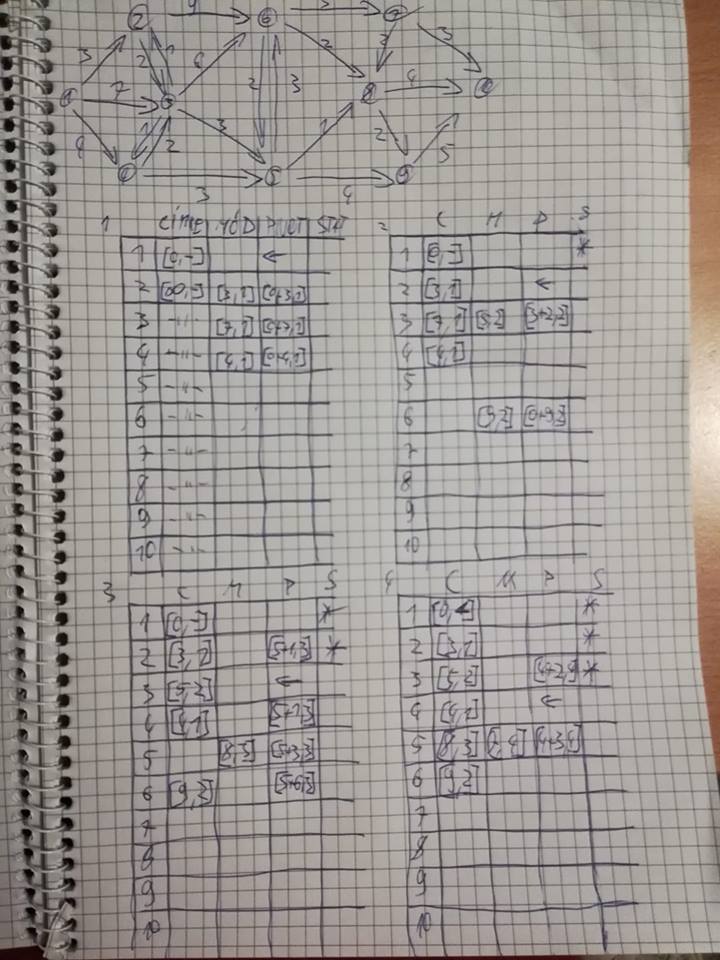 2 9 6 3 7
3 2 1 6 2 3 2 3
1 7 3 8 4 10
4 1 2 3 1 2 5
4 3 5 4 9
1
1 [0,-] ←
2 [∞,-] [3,1] [0+3,1]
3 -"- [7,1] [0+7,1]
4 -"- [4,1] [0+4,1]
5 -"-
6 -"-
7 -"-
8 -"-
9 -"-
10 -"-
2 C M P S
1 [0,-] *
2 [3,1] ←
3 [7,1] [5,2] [3+2,2]
4 [4,1]
5
6 [9,2]
7
8
9
10
3 C M P S
1 [0,-] *
2 [3,1] [5+1,3] *
3 [5,2] ←
4 [4,1] [5+1,3]
5 [8,3] [5+3,3]
6 [9,2] [5+6,3]
7
8
9
10
4 C M P S
1 *
2 [3,1] *
3 [5,2] [4+2,4] *
4 [4,1] ←
5 [8,3] [7,4] [4+3,4]
6 [9,2]
7
8
9
10